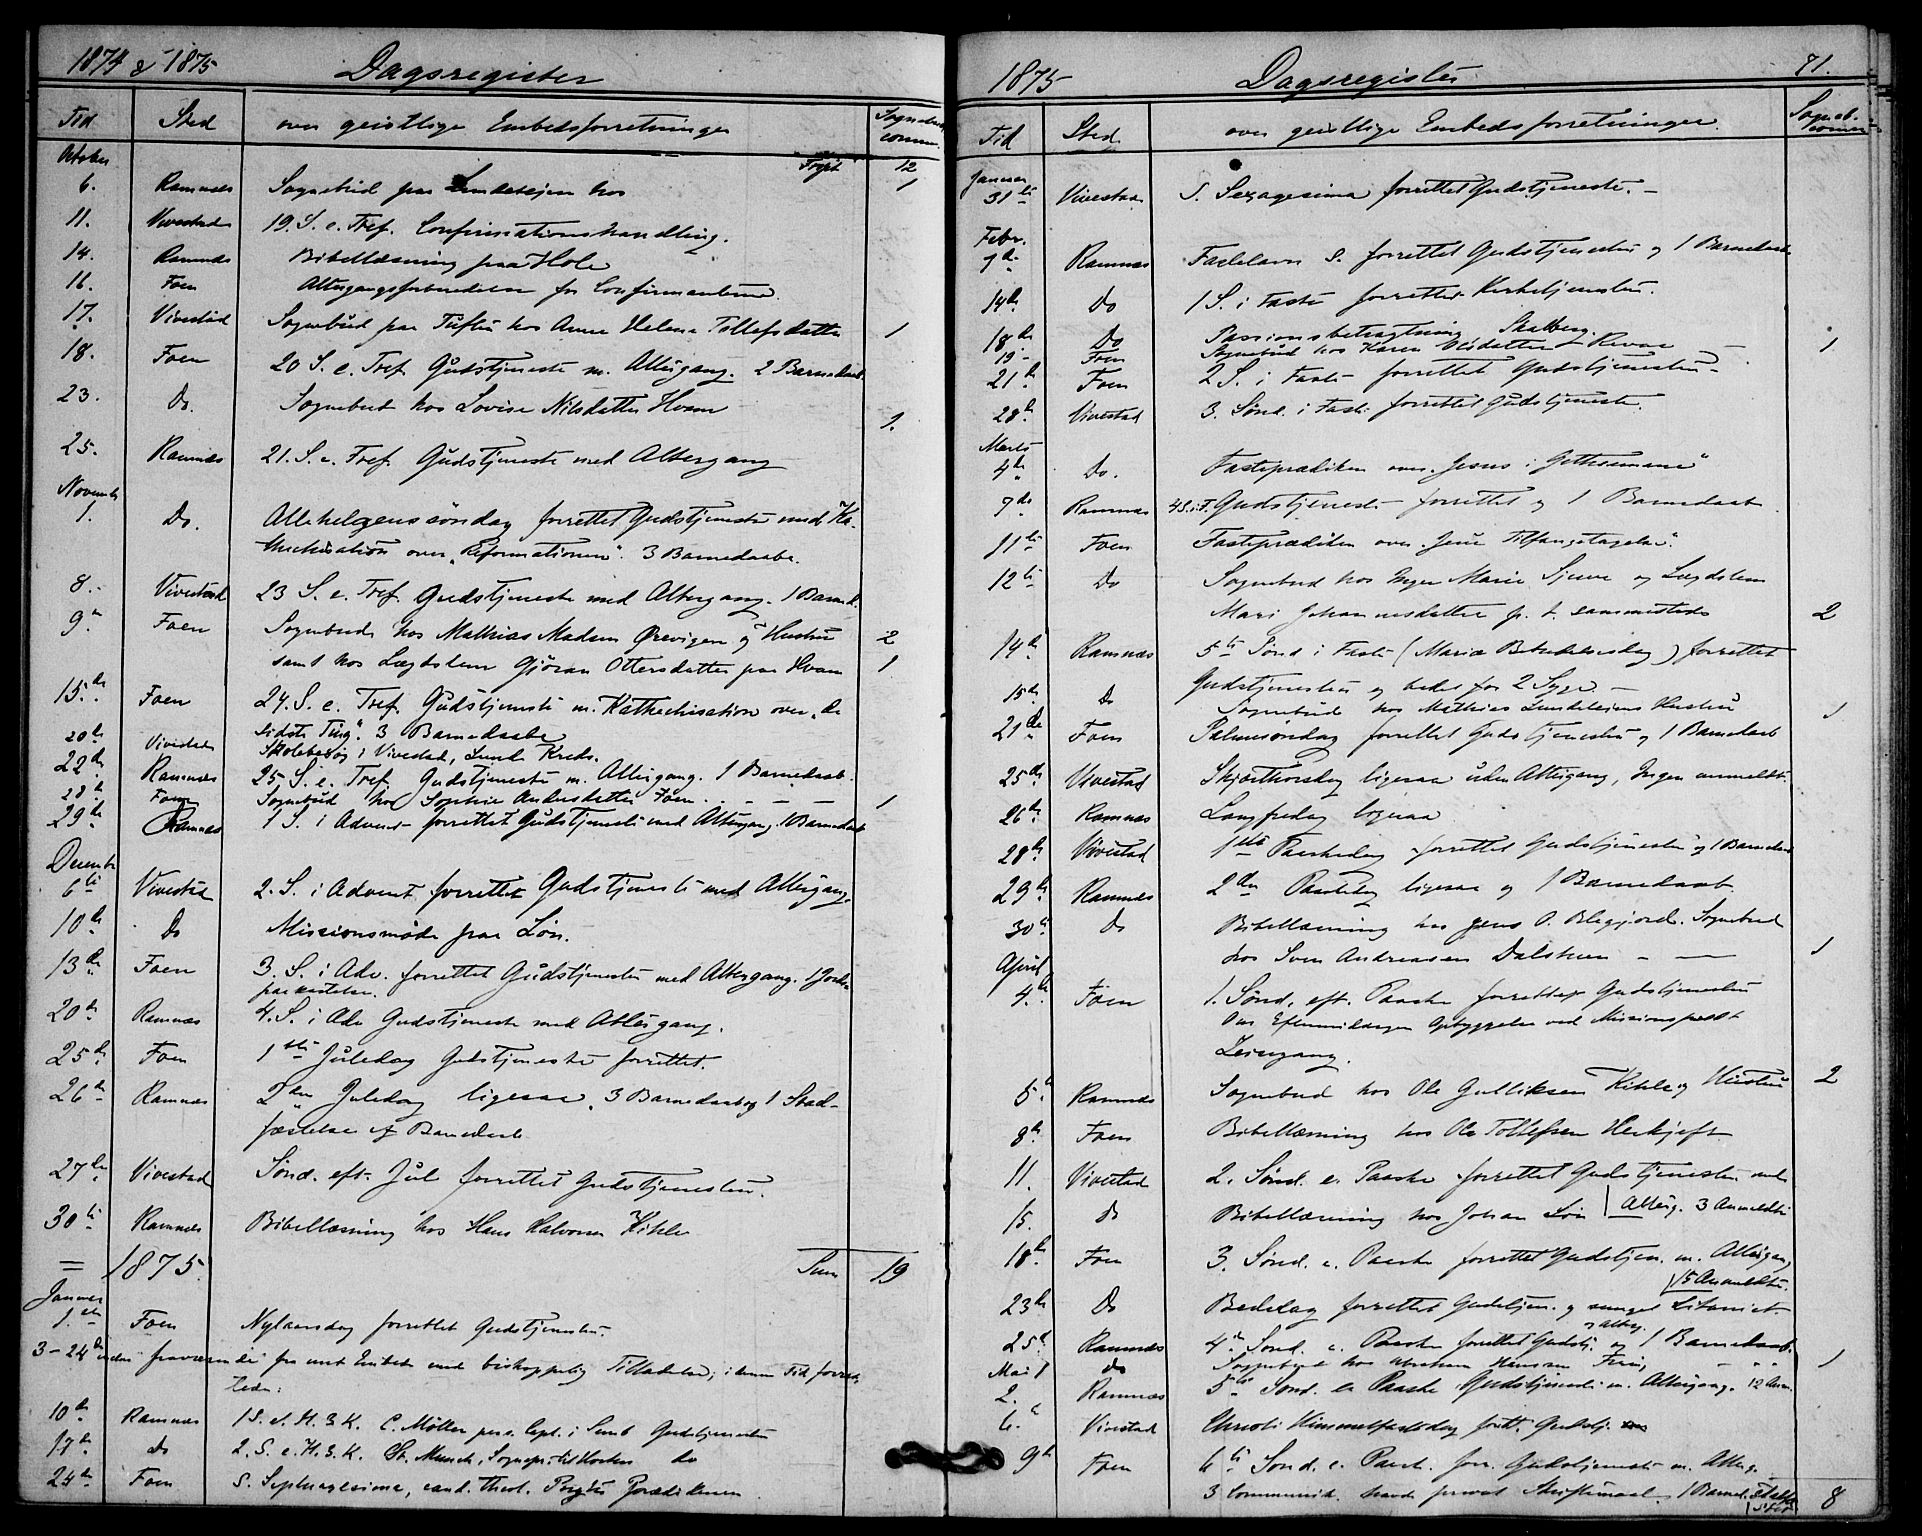 1874 & 1875 Dagsregister
Tid Sted over geistlige Embedsforretninger Sognebud comm.
October Trspt 12
6. Ramnæs Sognebud paa Lindesejen hos 1
11. Vivestad 19. S. e. Tref. Confirmationshandling.
14. Ramnæs Bibellæsning paa Hole
16. Foen Altergangsforberedelse for Confirmanterne.
17. Vivestad Sognebud paa Tufte hos Anne Helene Tollefsdatter 1
18. Foen 20 S. e. Tref. Gudstjeneste m. Altergang. 2 Barnedaab.
23. Do. Sognebud hos Lovise Nilsdatter Hvam 1.
25. Ramnæs 21. S. e. Tref. Gudstjeneste med Altergang
November
1. Do. Allehelgenssöndag forrettet Gudstjeneste med Ka-
thechisation over "Reformationen". 3 Barnedaabe.
8. Vivestad 23 S. e. Tref. Gudstjeneste med Altergang. 1 Barned.
9 Foen Sognebud hos Mathias Madsen Ørevigen og Hustru 2
samt hos Lægdslem Gjöran Ottersdatter paa Hvam 1
15 de Foen 24. S. e. Tref. Gudstjeneste m. Kathechisation over "de
sidste Ting". 3 Barnedaabe
20 de Vivestad Skolebesög i Vivestad, Lunde Kreds.
22 de Ramnæs 25. S. e. Tref. Gudstjeneste m. Altergang. 1 Barnedaab.
28 de Foen Sognebud hos Sophie Andersdatter Foen 1
29 de Ramnæs 1 S. i Advent forrettet Gudstjeneste med Altergang 1 Barnedaab
December
6 te Vivestad 2. S. i Advent forrettet Gudstjeneste med Altergang.
10 de Do Missionsmöde paa Lön.
13 de Foen 3. S. i Adv. forrettet Gudstjeneste med Altergang. 1 Jords-
paakastelse.
20 de Ramnæs 4. S. i Adv Gudstjeneste med Altergang.
25 de Foen 1ste Juledag Gudstjeneste forrettet.
26 de Ramnæs 2den Juledag ligesaa. 3 Barnedaab og 1 Stad-
fæstelse af Barnedaab
27 de Vivestad Sønd. eft. Jul forrettet Gudstjenesten.
30 te Ramnæs Bibellæsning hos Hans Halvorsen Kihle
= 1875. Sum 19
Januar
1. ste Foen Nytaarsdag forrettet Gudstjenesten.
3 - 24 de fraværende fra mit Embede med biskoppelig Tilladelse; i denne Tid forret-
tedes:
10 de Ramnæs 1 S. e. H. 3 K. C. Møller pers. Capl. i Semb Gudstjenesten
17 de do 2. S. e. H. 3. K. St. Munch, Sognepr. til Horten do
24 de Foen S. Septuagesima, cand. theol. Prædikenen
1875 Dagsregister 71.
Tid Sted over geistlige Embedsforretninger. Sogneb. comm.
Januar
31 te Vivestad S. Sexagesima forrettet Gudstjeneste. -
Febr.
7 de Ramnæs Fastelavns S. forrettet Gudstjenesten og 1 Barnedaab.
14 de Do 1 S. i Faste forrettet Kirketjenesten.
18 de Do Passionsbetragtning Skatberg.
19 - Foen Sognebud hos Karen Olsdatter Revaa 1
21 de Foen 2 S. i Faste forrettet Gudstjenesten.
28 de Vivestad 3. Sønd. i Faste forrettet Gudstjeneste.
Marts
4 de Do. Fasteprædiken over "Jesus i Gethsemane"
7 de Ramnæs 4 S. i F. Gudstjeneste forrettet og 1 Barnedaab
11 te Foen Fasteprædiken over "Jesu Tilfangetagelse".
12 te Do Sognebud hos Inger Marie Sjuve og Lægdslem
Mari Johannesdatter p. t. sammesteds 2
14 de Ramnæs 5te Sønd i Faste (Mariæ Bebudelsesdag) forrettet
Gudstjenesten og bedet for 2 Syge. -
15 de Do Sognebud hos Mathias Lundeteiens Hustru 1
21 de Foen Palmesöndag forrettet Gudstjenesten og 1 Barnedaab
25 de Vivestad Skjærthorsdag ligesaa uden Altergang, Ingen anmeldt.
26 de Ramnæs Langfredag ligesaa
28 de Vivestad 1ste Paaskedag forrettet Gudstjenesten og 1 Barnedaab
29 de Ramnæs 2den Paaskedag ligesaa og 1 Barnedaab.
30 te do Bibellæsning hos Jens O. Blegfjord. Sognebud
hos Sven Andreassen Dalstuen 1
April
4. de Foen 1. Sønd. eft. Paaske forrettet Gudstjenesten
Om Eftermiddagen Opbyggelse ved Missionspræst
Leirvgang.
5. te Ramnæs Sognebud hos Ole Gulliksen Kihle og Hustru 2
8 de Foen Bibellæsning hos Ole Tollefsen Herkjeft
11. Vivestad 2. Sønd. e. Paaske forrettet Gudstjenesten med
15. do Bibellæsning hos Johan Lön | Alterg. 3 Anmeldte
18 de Foen 3. Sønd. e. Paaske forrettet Gudstjen. m. Altergang,
15 Anmeldte.
23 de Do Bededag forrettet Gudstjen. og sunget Litaniet.
25 de Ramnæs 4de Sønd. e. Paaske forrettet Gudstj. og alterg. og 1 Barnedaab.
Mai 1 do Sognebud hos Abraham Hansen 1
2. Ramnæs 5te Sønd. e. Paaske Gudstjeneste m. Altergang. 12 Anm.
6. te Vivestad Christi Himmelfartsdag forrt. Gudstj.
9 de Foen 6te Sønd. e. Paask. forr. Gudstjeneste m. Alterg.
3 Communik. havde privat Skriftemaal. 1 Barned. 8